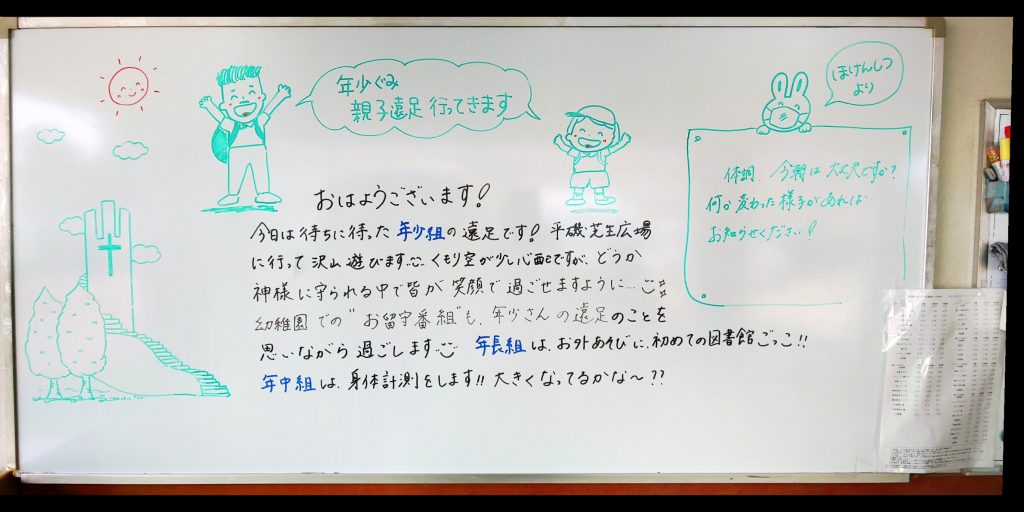 年少ぐみ
親子遠足 行ってきます
ほけんしつ
より
おはようございます!
今日は待ちに待った 年少組の遠足です! 平磯芝生広場
に行って沢山遊びます。くもり空が少し心配ですが、どうか
神様に守られる中で皆が笑顔で過ごせますように…
幼稚園での"お留守番組"も、年少さんの遠足のことを
思いながら過ごします 年長組は、お外あそびに、初めての図書館ごっこ!!
年中組は、身体計測をします!! 大きくなってるかな〜??
体調 今朝は大丈夫ですか?
何か変わった様子があれば
お知らせください!